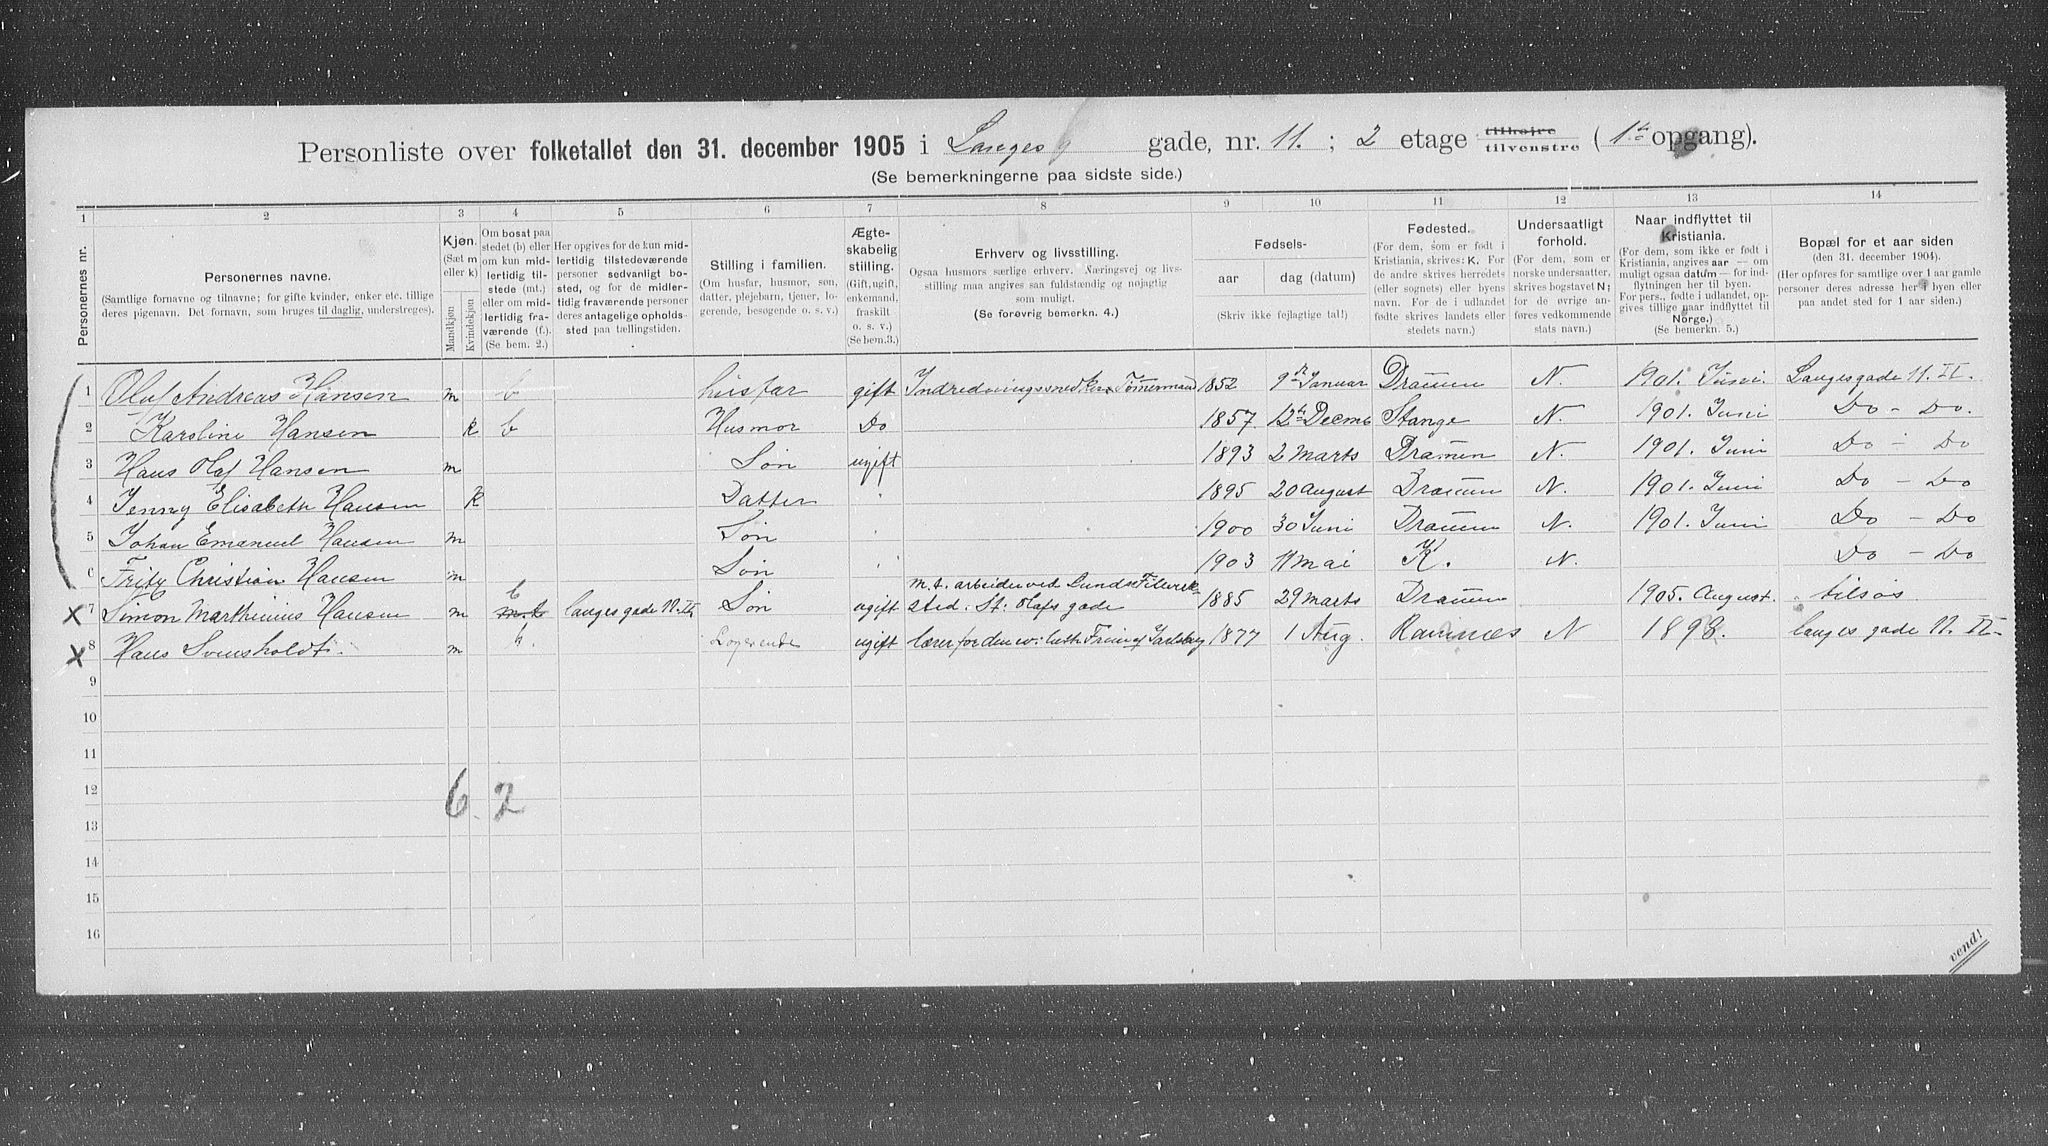 Personliste over folketallet den 31. december 1905 i Langes gade, nr. 11. ; 2 etage tilhøire tilvenstre ( 1ste opgang).
(Se bemerkningerne paa sidste side.)
1 2 3 4 5 6 7 8 9 10 11 12 13 14
Personernes nr.
Personernes navne.
(Samtlige fornavne og tilnavne; for gifte kvinder, enker etc. tillige deres pigenavn. Det fornavn, som bruges til daglig, understreges).
Kjøn.
(Sæt m eller k)
Mandkjøn
Kvindekjøn
Om bosat paa stedet (b) eller om kun midlertidig tilstede (mt.) eller om midlertidig fraværende (f.).
(Se bem. 2.)
Her opgives for de kun midlertidig tilstedeværende personer sedvanligt bosted, og for de midlertidig fraværende personer deres antagelige opholdssted paa tællingstiden.
Stilling i familien.
(Om husfar, husmor, søn, datter, plejebarn, tjener, logerende, besøgende o. s. v.)
Ægteskabelig stilling.
(Gift, ugift, enkemand, fraskilt o. s. v.)
(Se bem.3.)
Erhverv og livsstilling.
Ogsaa husmors særlige erhverv. Næringsvej og livsstilling maa angives saa fuldstændig og nøjagtig som muligt.
(Se forøvrig bemerkn. 4.)
Fødsels-
aar
dag (datum)
(Skriv ikke fejlagtige tal!)
Fødested.
(For dem, som er født i Kristiania, skrives: K. For de andre skrives herredets (eller sognets) eller byens navn. For de i udlandet fødte skrives landets eller stedets navn.)
Undersaatligt forhold.
(For dem, som er norske undersaatter, skrives bogstavet N; for de øvrige anføres vedkommende stats navn.)
Naar indflyttet til Kristiania.
(For dem, som ikke er født i Kristiania, angives aar — om muligt ogsaa datum — for indflytningen her til byen. For pers., fødte i udlandet, opgives tillige naar indflyttet til Norge.)
(Se bemerkn. 5.)
Bopæl for et aar siden
(den 31. december 1904).
(Her opføres for samtlige over 1 aar gamle personer deres adresse her i byen eller paa andet sted for 1 aar siden.)
1 Oluf Andreas Hansen m b husfar gift Indredningssnedker Tømermand 1852 9de Januar Dramen N. 1901. Juni. Langesgade 11. II.
2 Karoline Hansen k b Husmor Do 1857 12te Decmb Stange N. 1901. Juni Do - Do.
3 Hans Olaf Hansen m Søn ugift 1893 2 Marts Dramen N. 1901. Juni Do - Do
4 Jenny Elisabeth Hansen k Datter 1895 20 August Dramen N. 1901. Juni Do - Do
5 Johan Emanuel Hansen m Søn 1900 30 Juni Dramen N. 1901. Juni Do - Do
6 Fritz Christian Hansen m Søn 1903 11 mai K. N. Do - Do
X 7 Simon Marthinius Hansen m b m.t langes gade 11. II Søn ugift m.t. arbeider ved Lunds Filversted. St: Olafs gade 1885 29 Marts Dramen 1905. August. tilsøs
X 8 Hans Svensholdt. m b. Logerende ugift lærer for den ev: luth. Frim af Jarlsberg 1877 1 Aug. Ramnæs N 1898. langes gade 11. II
9
10
11
12
13
14
15
16
6. 2
vend!